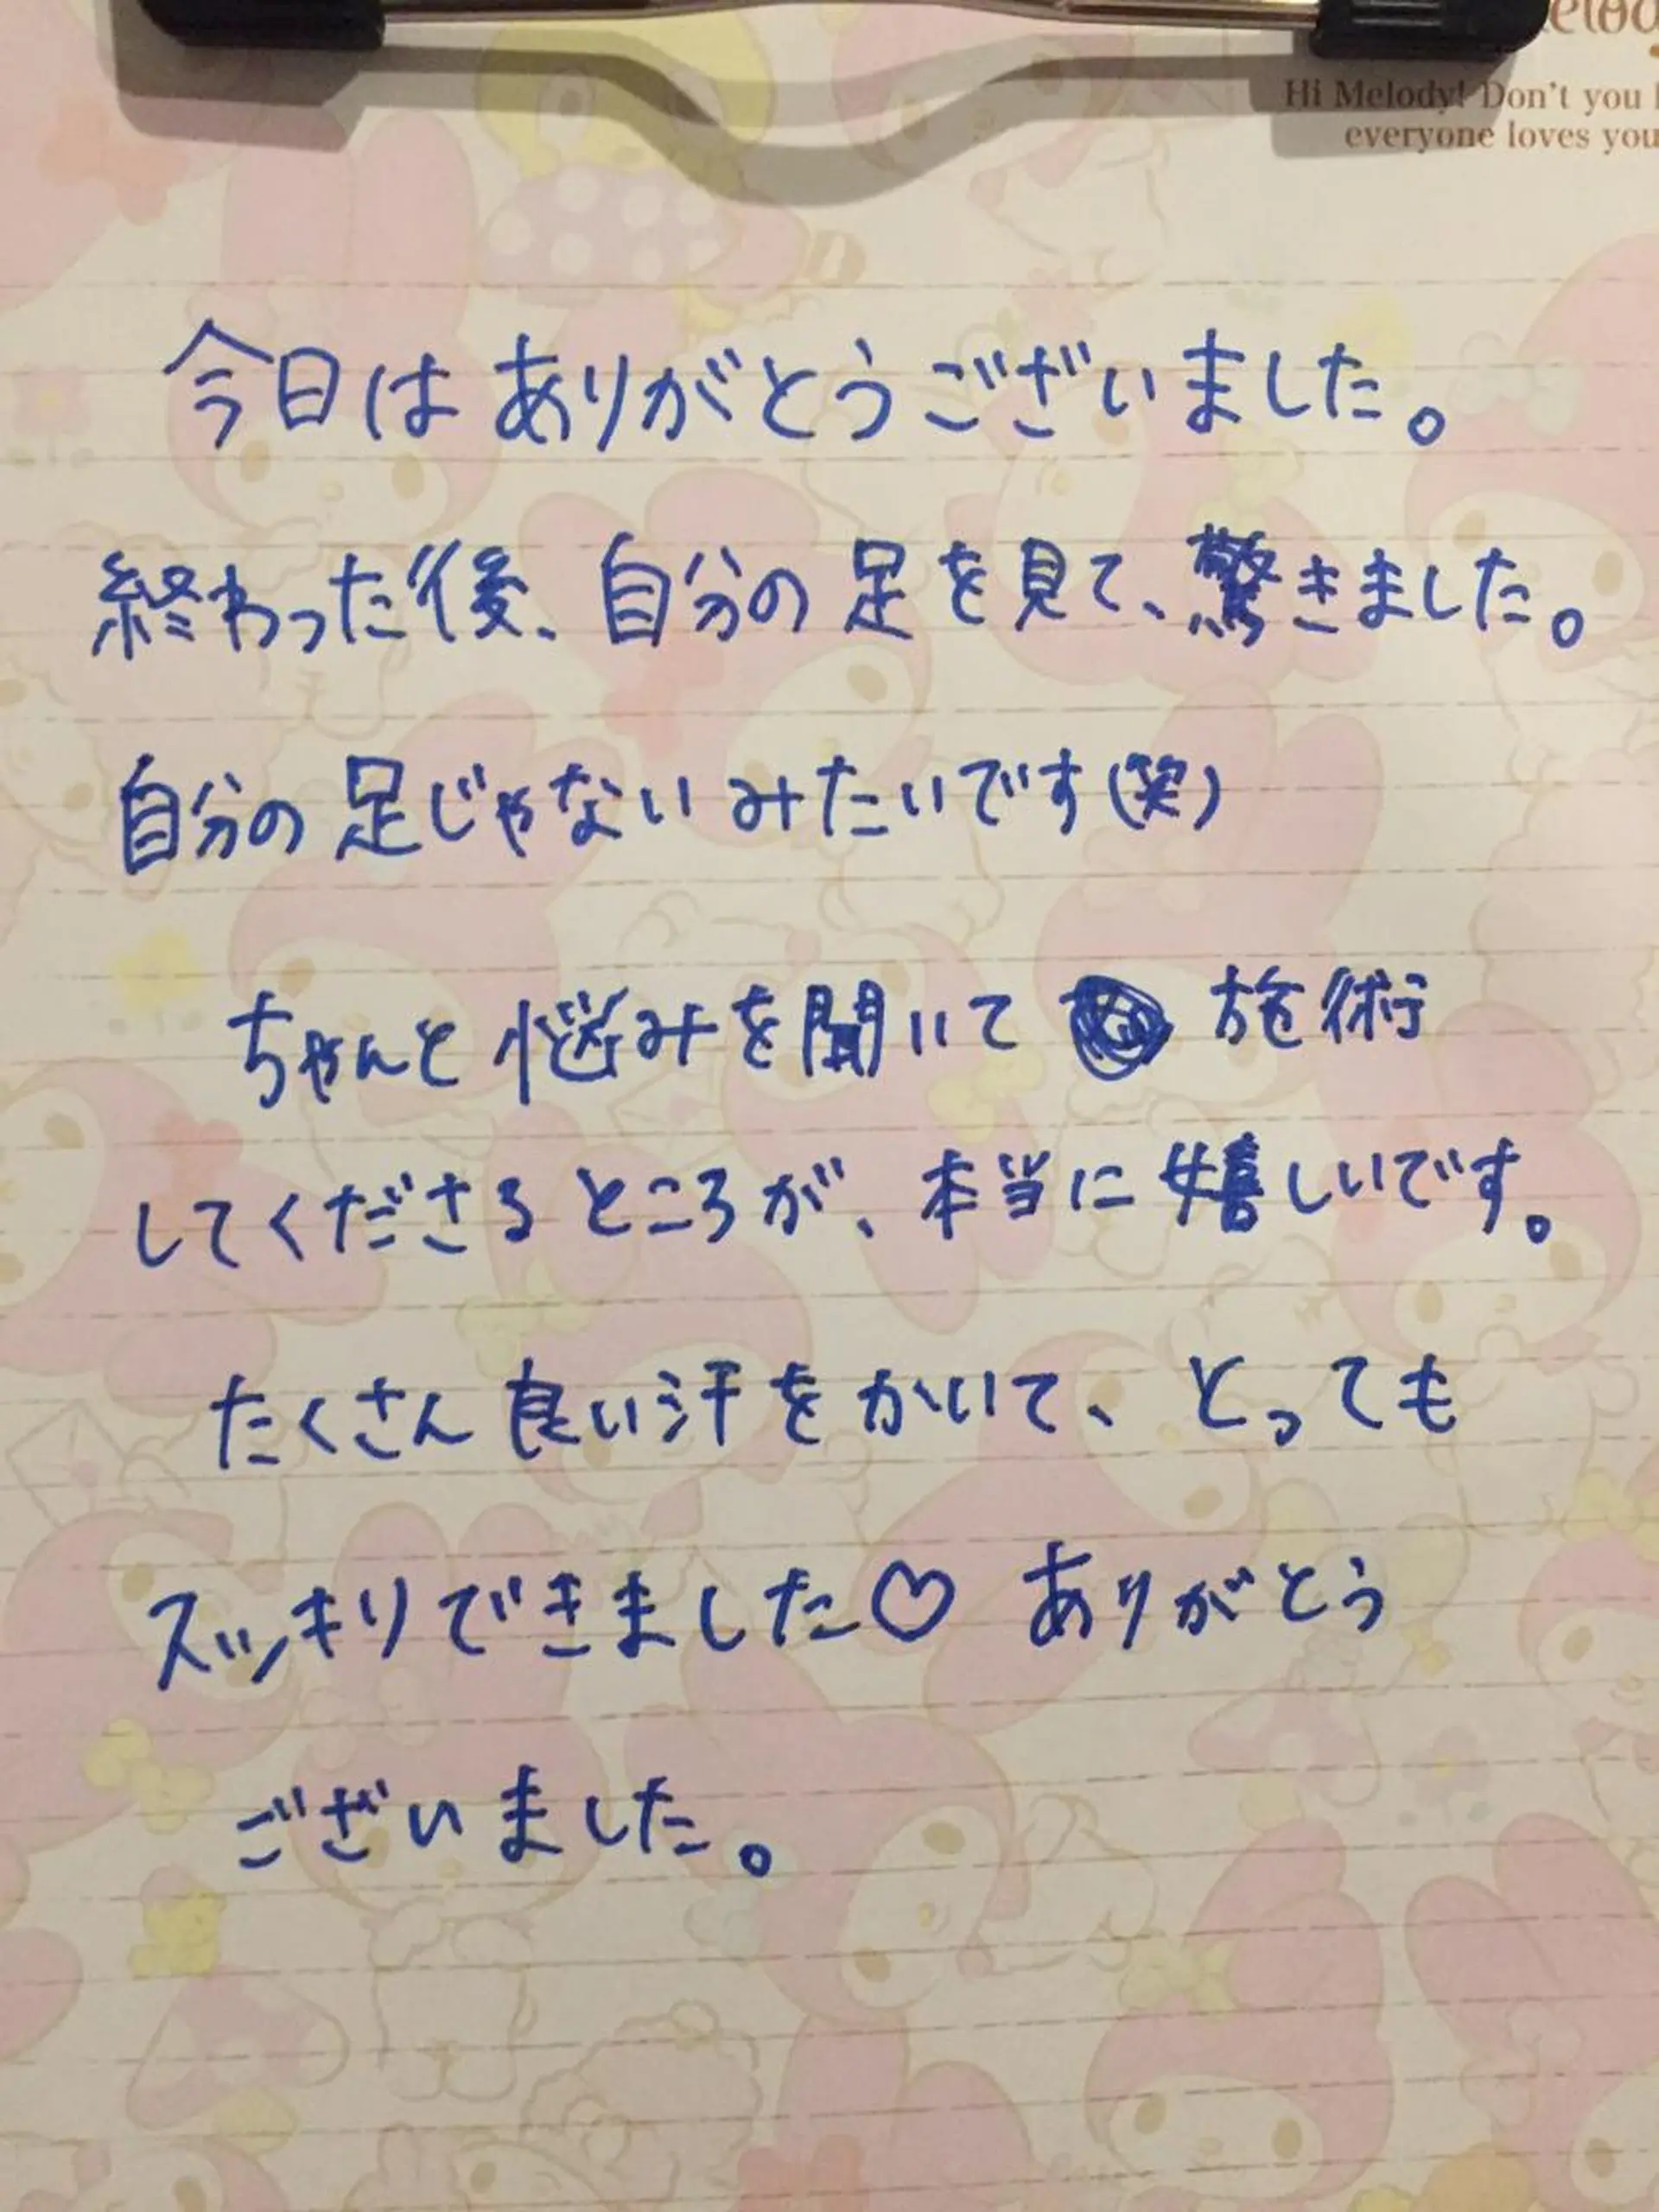 Hi Melody! Don't you
everyone loves you
今日はありがとうございました。
終わった後、自分の足を見て、驚きました。
自分の足じゃないみたいです(笑)
ちゃんと悩みを聞いて 施術
してくださるところが、本当に嬉しいです。
たくさん良い汗をかいて、とっても
スッキリできました♡ ありがとう
ございました。